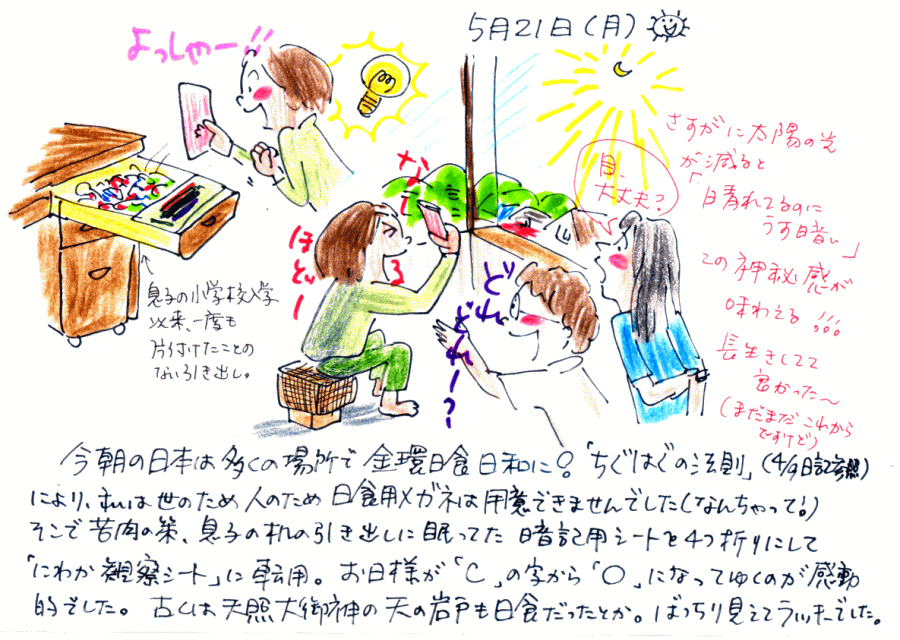 5月21日(月)
よっしゃー!!
さすがに太陽の光
が減ると
日、晴れてるのに
うす暗い」
この神秘感が
味わえる!!!
長生きしてて
良かった〜
(まだまだこれから
ですけど)
目、
大丈夫?
なる
ほどー
どれ
どれー?
息子の小学校入学
以来、一度も
片付けたことの
ない引き出し。
今朝の日本は多くの場所で金環日食日和に♀「ちぐはぐの法則」(4/9日記参照)
により、私は世のため人のため日食用メガネは用意できませんでした(なんちゃって!)
そこで苦肉の策、息子の机の引き出しに眠ってた暗記用シートを4つ折りにして
「にわか観察シート」に転用。お日様が「C」の字から「O」になってゆくのが感動
的でした。古くは天照大御神の天の岩戸も日食だったとか。ばっちり見えてラッキーでした。